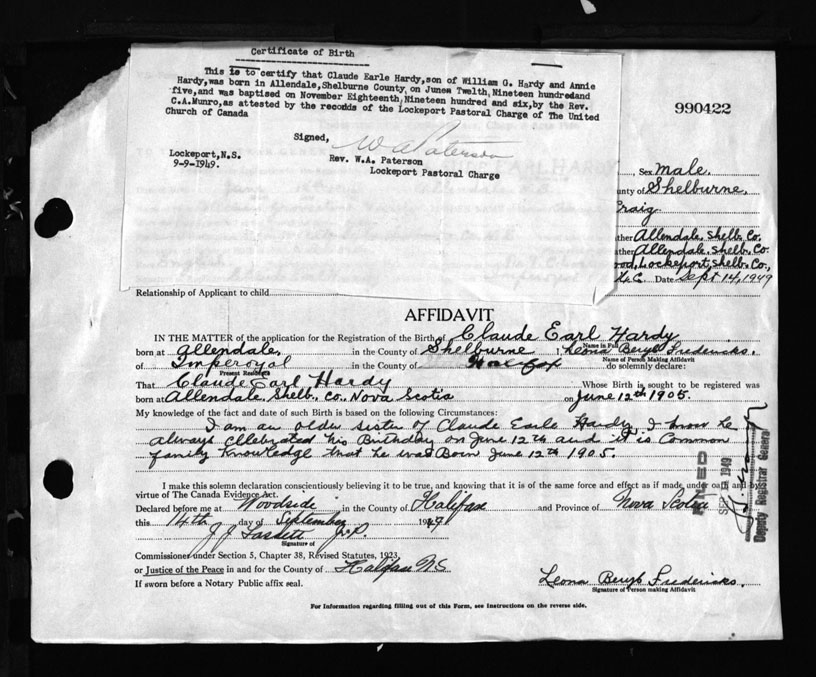 Certificate of Birth
This is to certify that Claude Earle Hardy,son of William G. Hardy and Annie
Hardy,was born in Allendale,Shelburne County, on Junem Twelth,Nineteen hundredand
five,and was baptised on November Eighteenth,Nineteen hundred and six,by the Rev.
C.A.Munro,as attested by the records of the Lockeport Pastoral Charge of The United
Church of Canada
990422
Signed,
W A Paterson
Rev. W.A. Paterson
Lockeport Pastoral Charge
Lockeport,N.S.
9-9-1949.
Sex Male.
unty of Shelburne,
Craig
ther Allendale. Shelb. Co.
ather Allendale. Shelb. Co.
ood, Lockeport, Shelb. Co.,
Date Sept 14, 1949
Relationship of Applicant to child
AFFIDAVIT
IN THE MATTER of the application for the Registration of the Birth of Claude Earl Hardy
Name in Full
born at Allendale, in the County of Shelburne I, Leona Beryl Fredericks.
Name of Person Making Affidavit
of Imperoyal in the County of Halifax do solemnly declare:
Present Residence
That Claude Earl Hardy Whose Birth is sought to be registered was
born at Allendale, Shelb. Co., Nova Scotia on June 12th 1905.
My knowledge of the fact and date of such Birth is based on the following Circumstances:
I am an older sister of Claude Earle Hardy, I know he
always cllebrated his Birthday on June 12th and it is Common
family Knowledge that he was Born June 12th 1905.
I make this solemn declaration conscientiously believing it to be true, and knowing that it is of the same force and effect as if made under oath and by
virtue of The Canada Evidence Act.
Declared before me at Woodside in the County of Halifax and Province of Nova Scotia
this 14th day of September 1949
Signature of
Commissioner under Section 5, Chapter 38, Revised Statutes, 1923,
or Justice of the Peace in and for the County of Halifax N S
If sworn before a Notary Public affix seal.
Leona Beryl Fredericks.
Signature of Person making Affidavit
For Information regarding filling out of this Form, see Instructions on the reverse side.
Deputy Registrar General